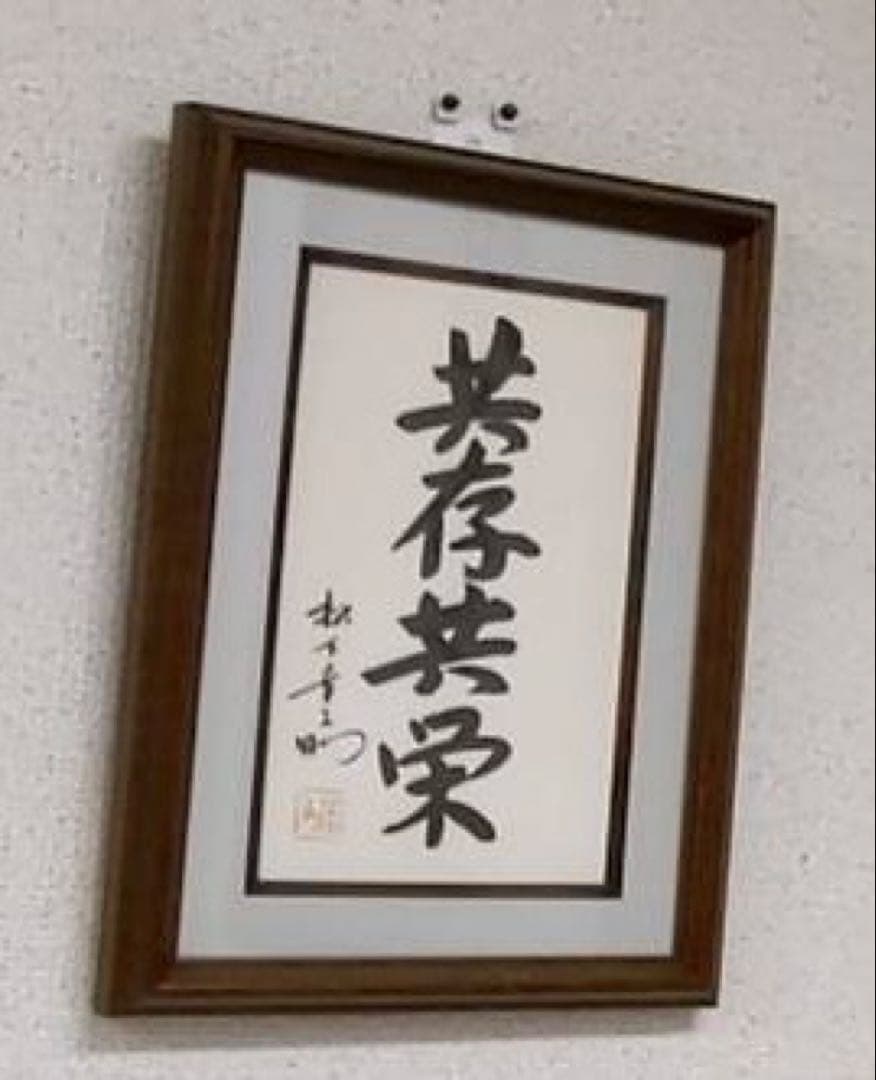 共存共栄
松下幸之助